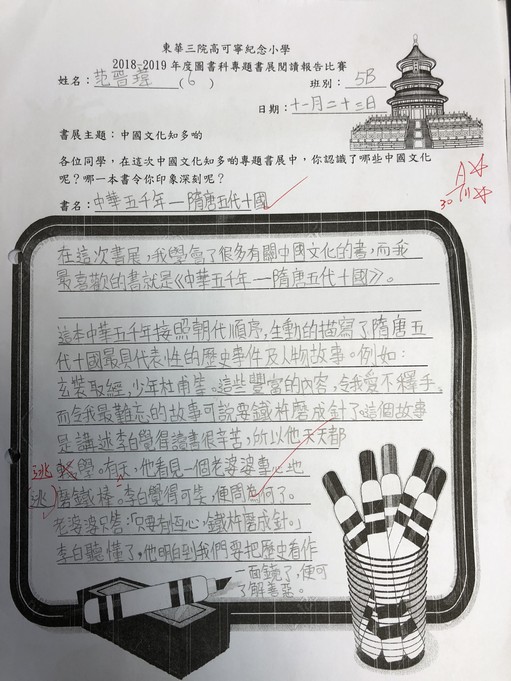 東華三院高可寧紀念小學
2018-2019 年度圖書科專題書展閱讀報告比賽
姓名：范晉瑋 (6) 班別：5B
日期：十一月二十三日
書展主題：中國文化知多啲
各位同學，在這次中國文化知多啲的專題書展中，你認識了哪些中國文化
呢？哪一本書令你印象深刻呢？
書名：中華五千年—隋唐五代十國
30
在這次書展，我學會了很多有關中國文化的書，而我
最喜歡的書就是《中華五千年—隋唐五代十國》。
這本中華五千年按照朝代順序，生動的描寫了隋唐五
代十國最具代表性的歷史事件及人物故事。例如：
玄裝取經，少年杜甫等。這些豐富的內容，令我愛不釋手。
而令我最難忘的故事可說要鐵杵磨成針了。這個故事
是講述李白覺得讀書很辛苦，所以他天天都
逃學。有天，他看見一個老婆婆專心地
逃 磨鐵棒。李白覺得可笑，便問為何了。
老婆婆只答：「只要有恆心，鐵杵磨成針。」
李白聽懂了，他明白到我們要把歷史看作
一面鏡了，便可
了解善惡。